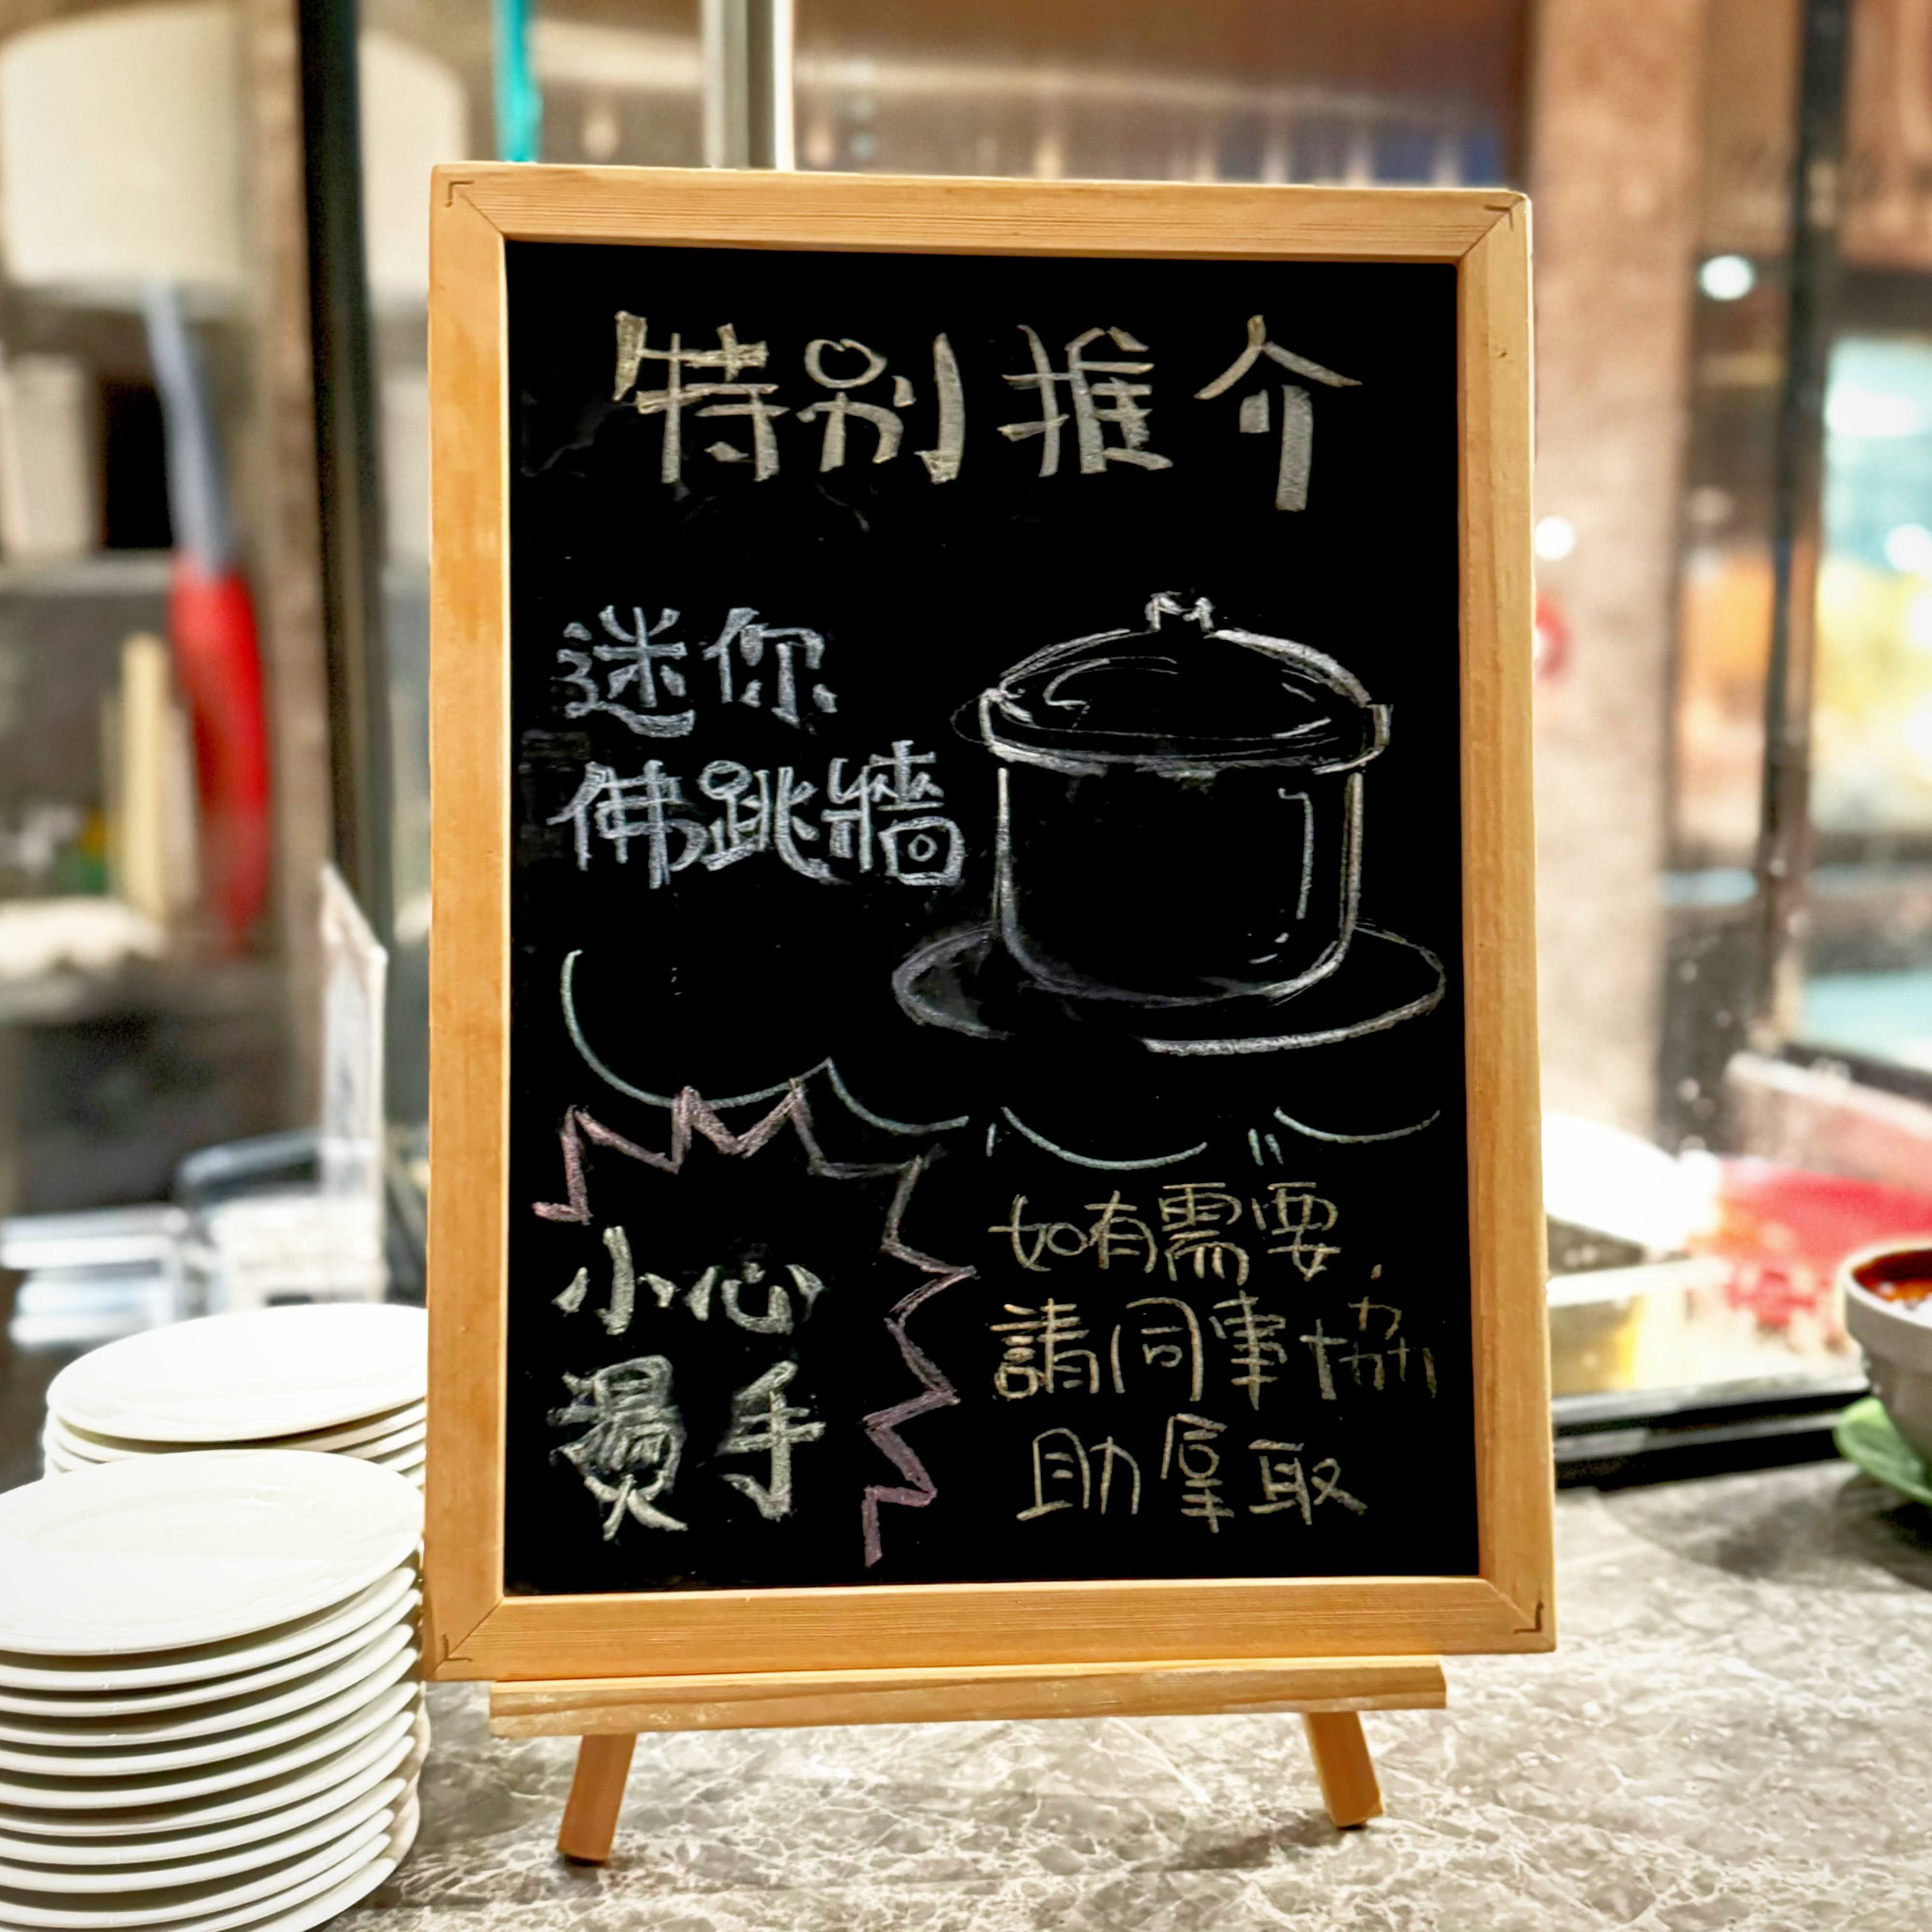 特別推介
迷你
佛跳牆
小心
燙手
如有需要,
請同事協
助拿取